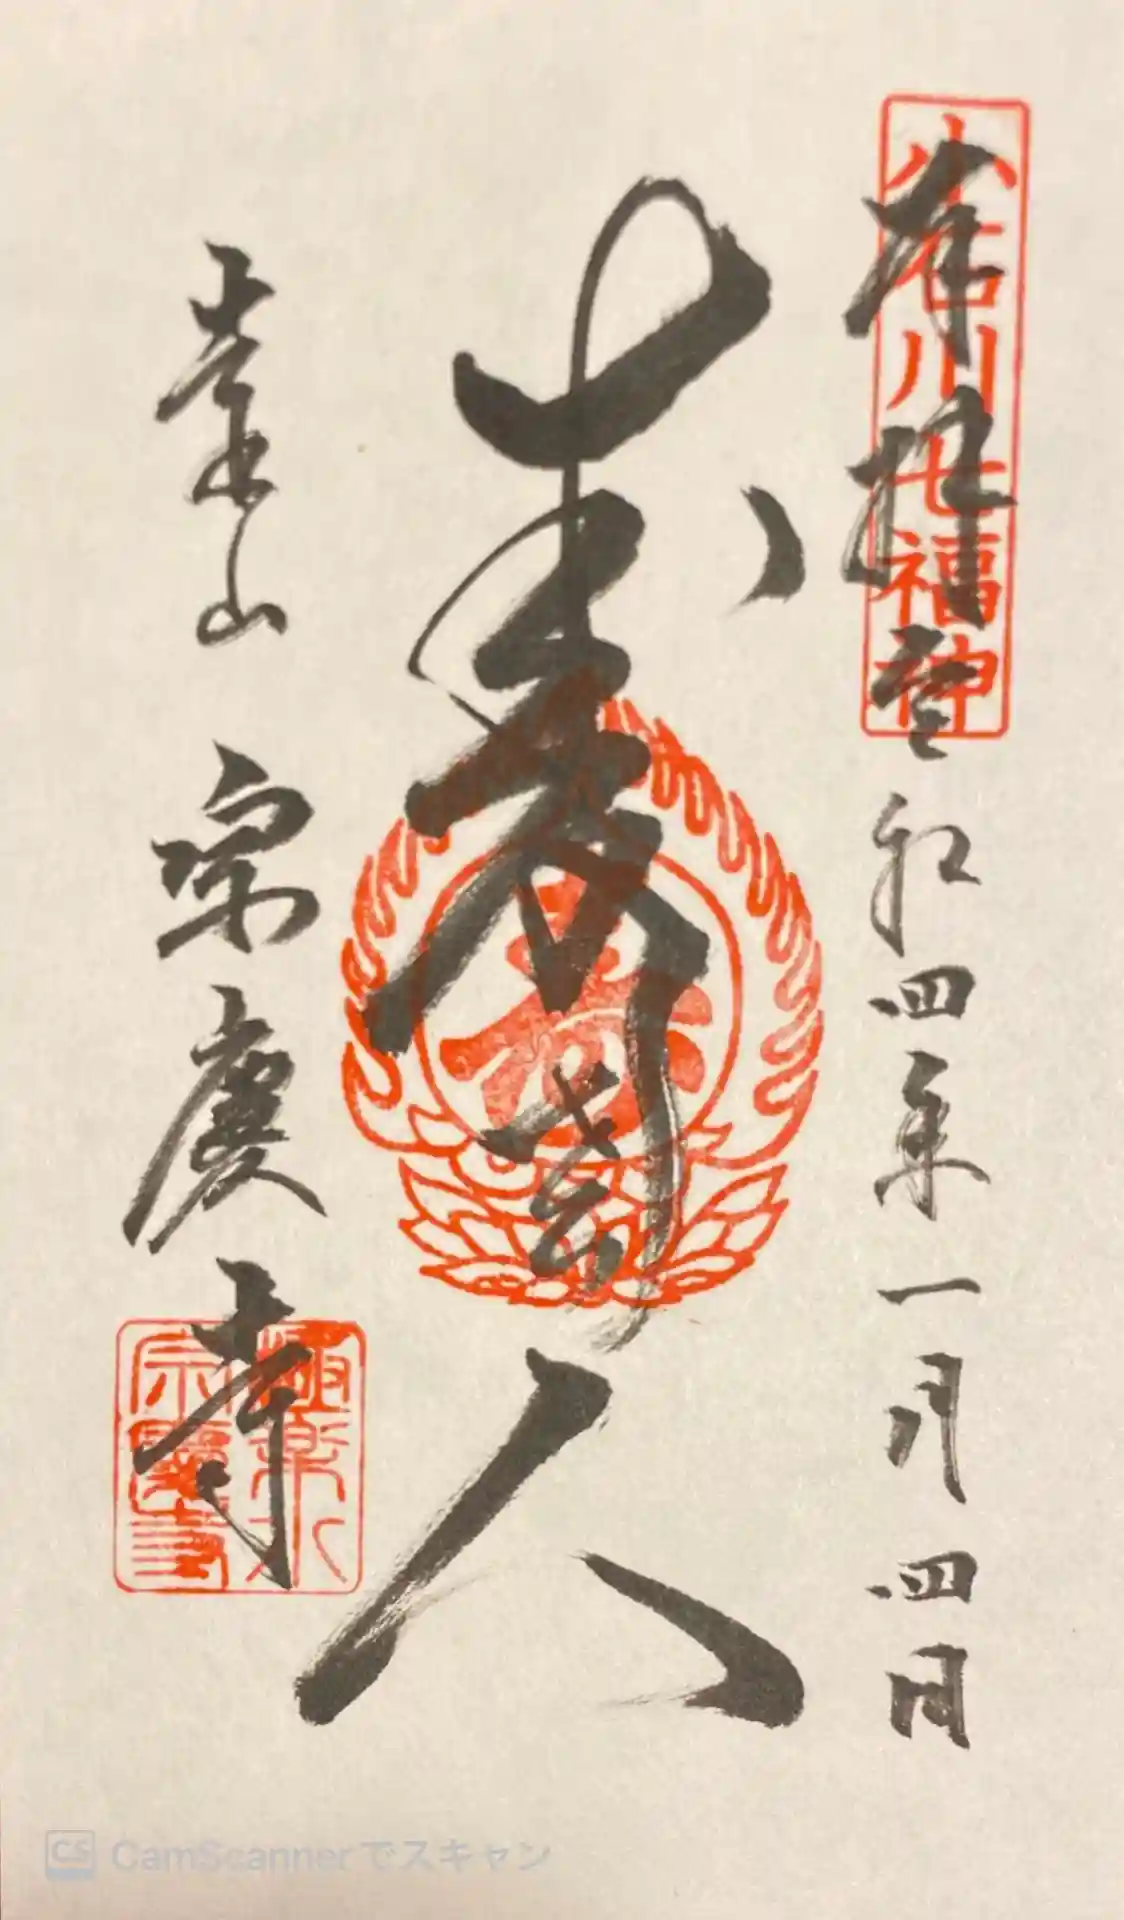 小石川七福神
奉拝 令和四年一月四日
寿老人
吉水山 宗慶寺
極楽水
宗慶寺
CS CamScannerでスキャン